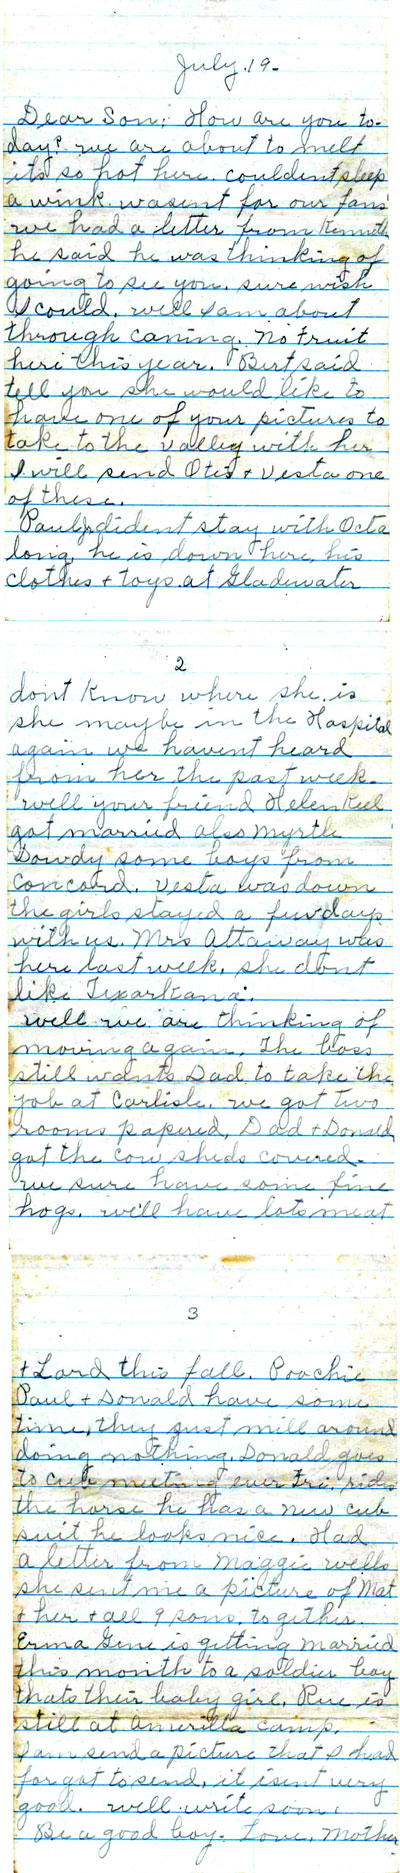 July 19-
Dear Son: How are you to-
day? we are about to melt
its so hot here. couldent sleep
a wink wasent for our fans
we had a letter from Kenneth
he said he was thinking of
going to see you. sure wish
I could. well I am about
through caning. no fruit
here this year. Bert said
tell you she would like to
have one of your pictures to
take to the valley with her
I will send Otis + Vesta one
of these.
Paul dident stay with Octa
long, he is down here, his
clothes + toys at Gladewater
2
dont know where she is
she maybe in the Hospital
again we havent heard
from her the past week.
well your friend Helen
got married also Myrtle
Dowdy some boys from
Concord. Vesta was down
the girls stayed a few days
with us. Mrs Attaway was
here last week, she dont
like Texarkana.
well we are thinking of
moving again. The boss
still wants Dad to take the
job at Carlisle. we got two
rooms papered, Dad + Donald
got the cow sheds covered.
we sure have some fine
hogs. we'll have lots meat
3
+ Lard this fall. Poochie
Paul + Donald have some
time, they just mill around
doing nothing. Donald goes
to cub meeting ever Fri. rides
the horse he has a new cub
suit he looks nice. Had
a letter from Maggie wells
she sent me a picture of Mat
+ her + all 9 sons. to gether.
Erma Gene is getting married
this month to a soldier boy
thats their baby girl. Rue is
still at Amerilla camp.
I am send a picture that I had
forgot to send, it isent very
good. well write soon.
Be a good boy. Love, Mother